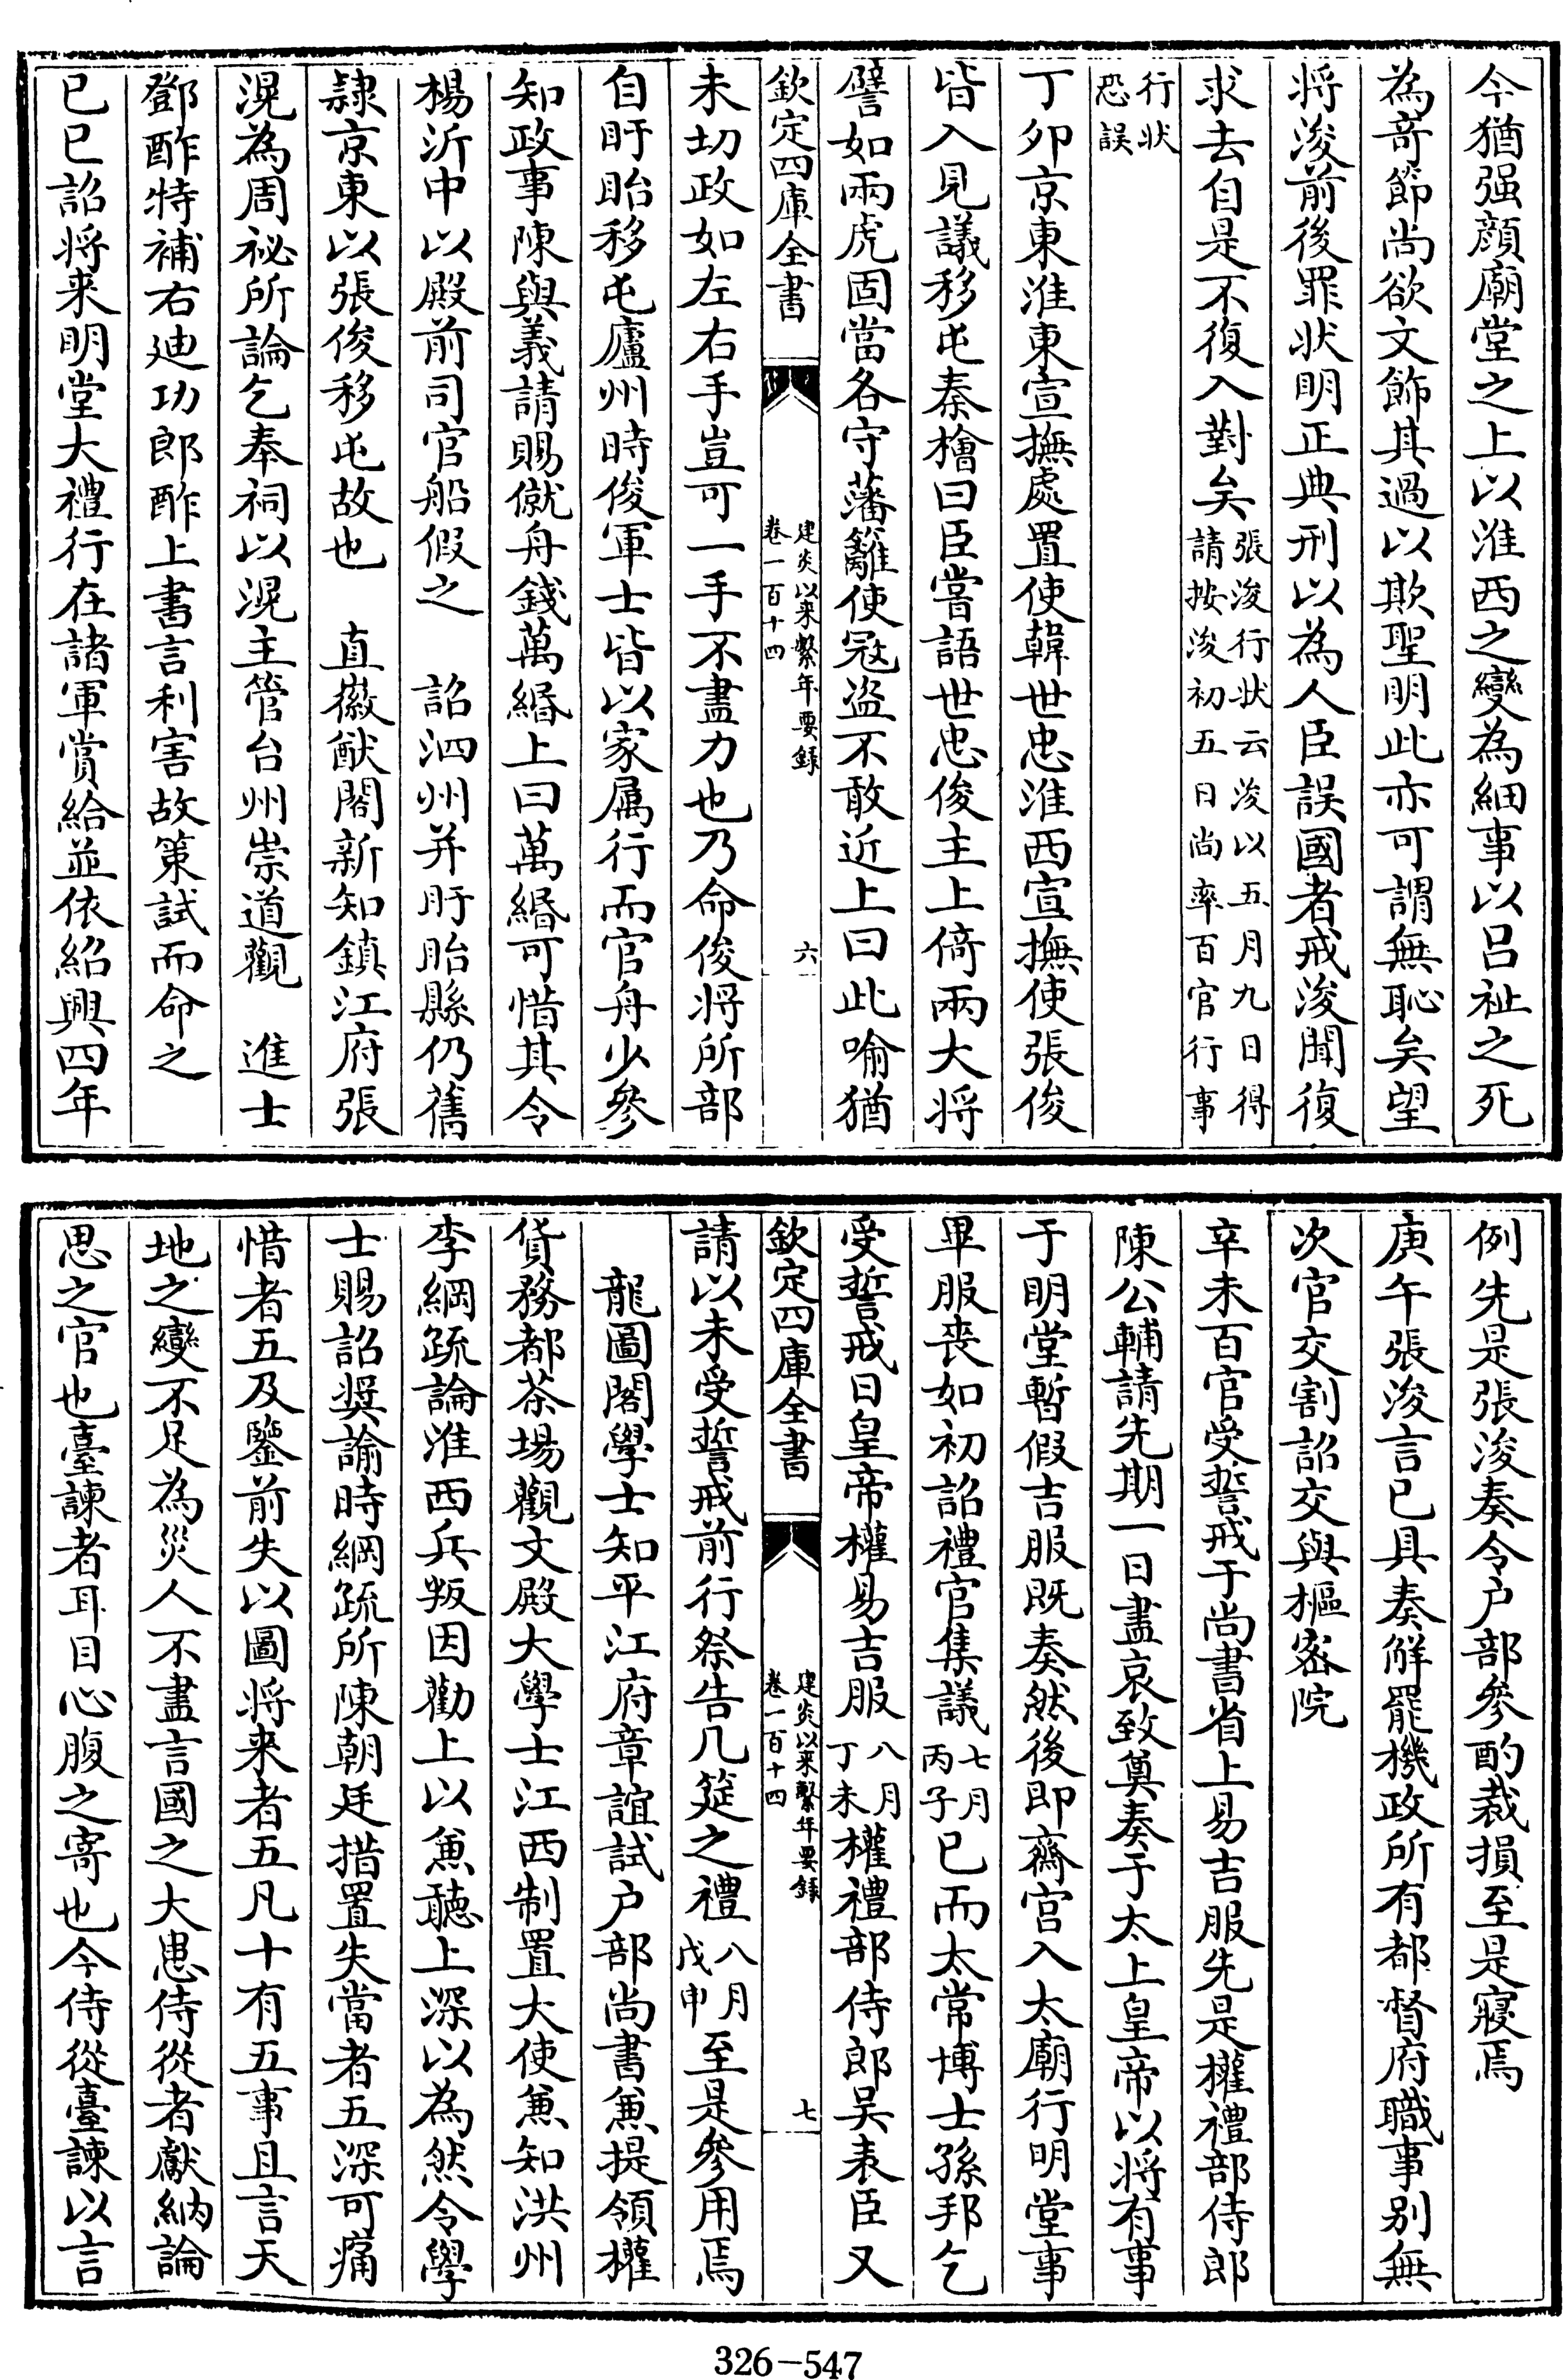 今猶强顔廟堂之上以淮西之變為細事以吕祉之死
為竒節尚欲文飾其過以欺聖明此亦可謂無恥矣望
将浚前後罪状明正典刑以為人臣誤國者戒浚聞復
求去自是不復入對矣張浚行状云浚以五月九日得請按浚初五日尚率百官行事
行状恐誤
丁卯京東淮東宣撫處置使韓世忠淮西宣撫使張俊
皆入見議移屯秦檜曰臣嘗語世忠俊主上倚兩大将
譬如兩虎固當各守藩籬使冦盗不敢近上曰此喻猶
欽定四庫全書
建炎以来繫年要録
卷一百十四
六
未切政如左右手豈可一手不盡力也乃命俊将所部
自盱眙移屯廬州時俊軍士皆以家属行而官舟少參
知政事陳與義請賜僦舟錢萬緡上曰萬緡可惜其令
楊沂中以殿前司官船假之　詔泗州并盱眙縣仍舊
隸京東以張俊移屯故也　直徽猷閣新知鎮江府張
滉為周祕所論乞奉祠以滉主管台州崇道觀　進士
鄧酢特補右廸功郎酢上書言利害故策試而命之
已巳詔将来明堂大禮行在諸軍賞給並依紹興四年
例先是張浚奏令户部參酌裁損至是寢焉
庚午張浚言已具奏解罷機政所有都督府職事别無
次官交割詔交與樞密院
辛未百官受誓戒于尚書省上易吉服先是權禮部侍郎
陳公輔請先期一日盡哀致奠奏于太上皇帝以将有事
于明堂暫假吉服既奏然後即齋宫入太廟行明堂事
畢服喪如初詔禮官集議七月丙子已而太常博士孫邦乞
受誓戒日皇帝權易吉服八月丁未權禮部侍郎吴表臣又
欽定四庫全書
建炎以来繫年要録
卷一百十四
七
請以未受誓戒前行祭告几筵之禮八月戊申至是參用焉
龍圖閣學士知平江府章誼試户部尚書兼提領榷
貨務都茶場觀文殿大學士江西制置大使兼知洪州
李綱疏論淮西兵叛因勸上以兼聽上深以為然令學
士賜詔奨諭時綱疏所陳朝廷措置失當者五深可痛
惜者五及鑒前失以圖将来者五凡十有五事且言天
地之變不足為災人不盡言國之大患侍從者獻納論
思之官也臺諫者耳目心腹之寄也今侍從臺諫以言
326-547